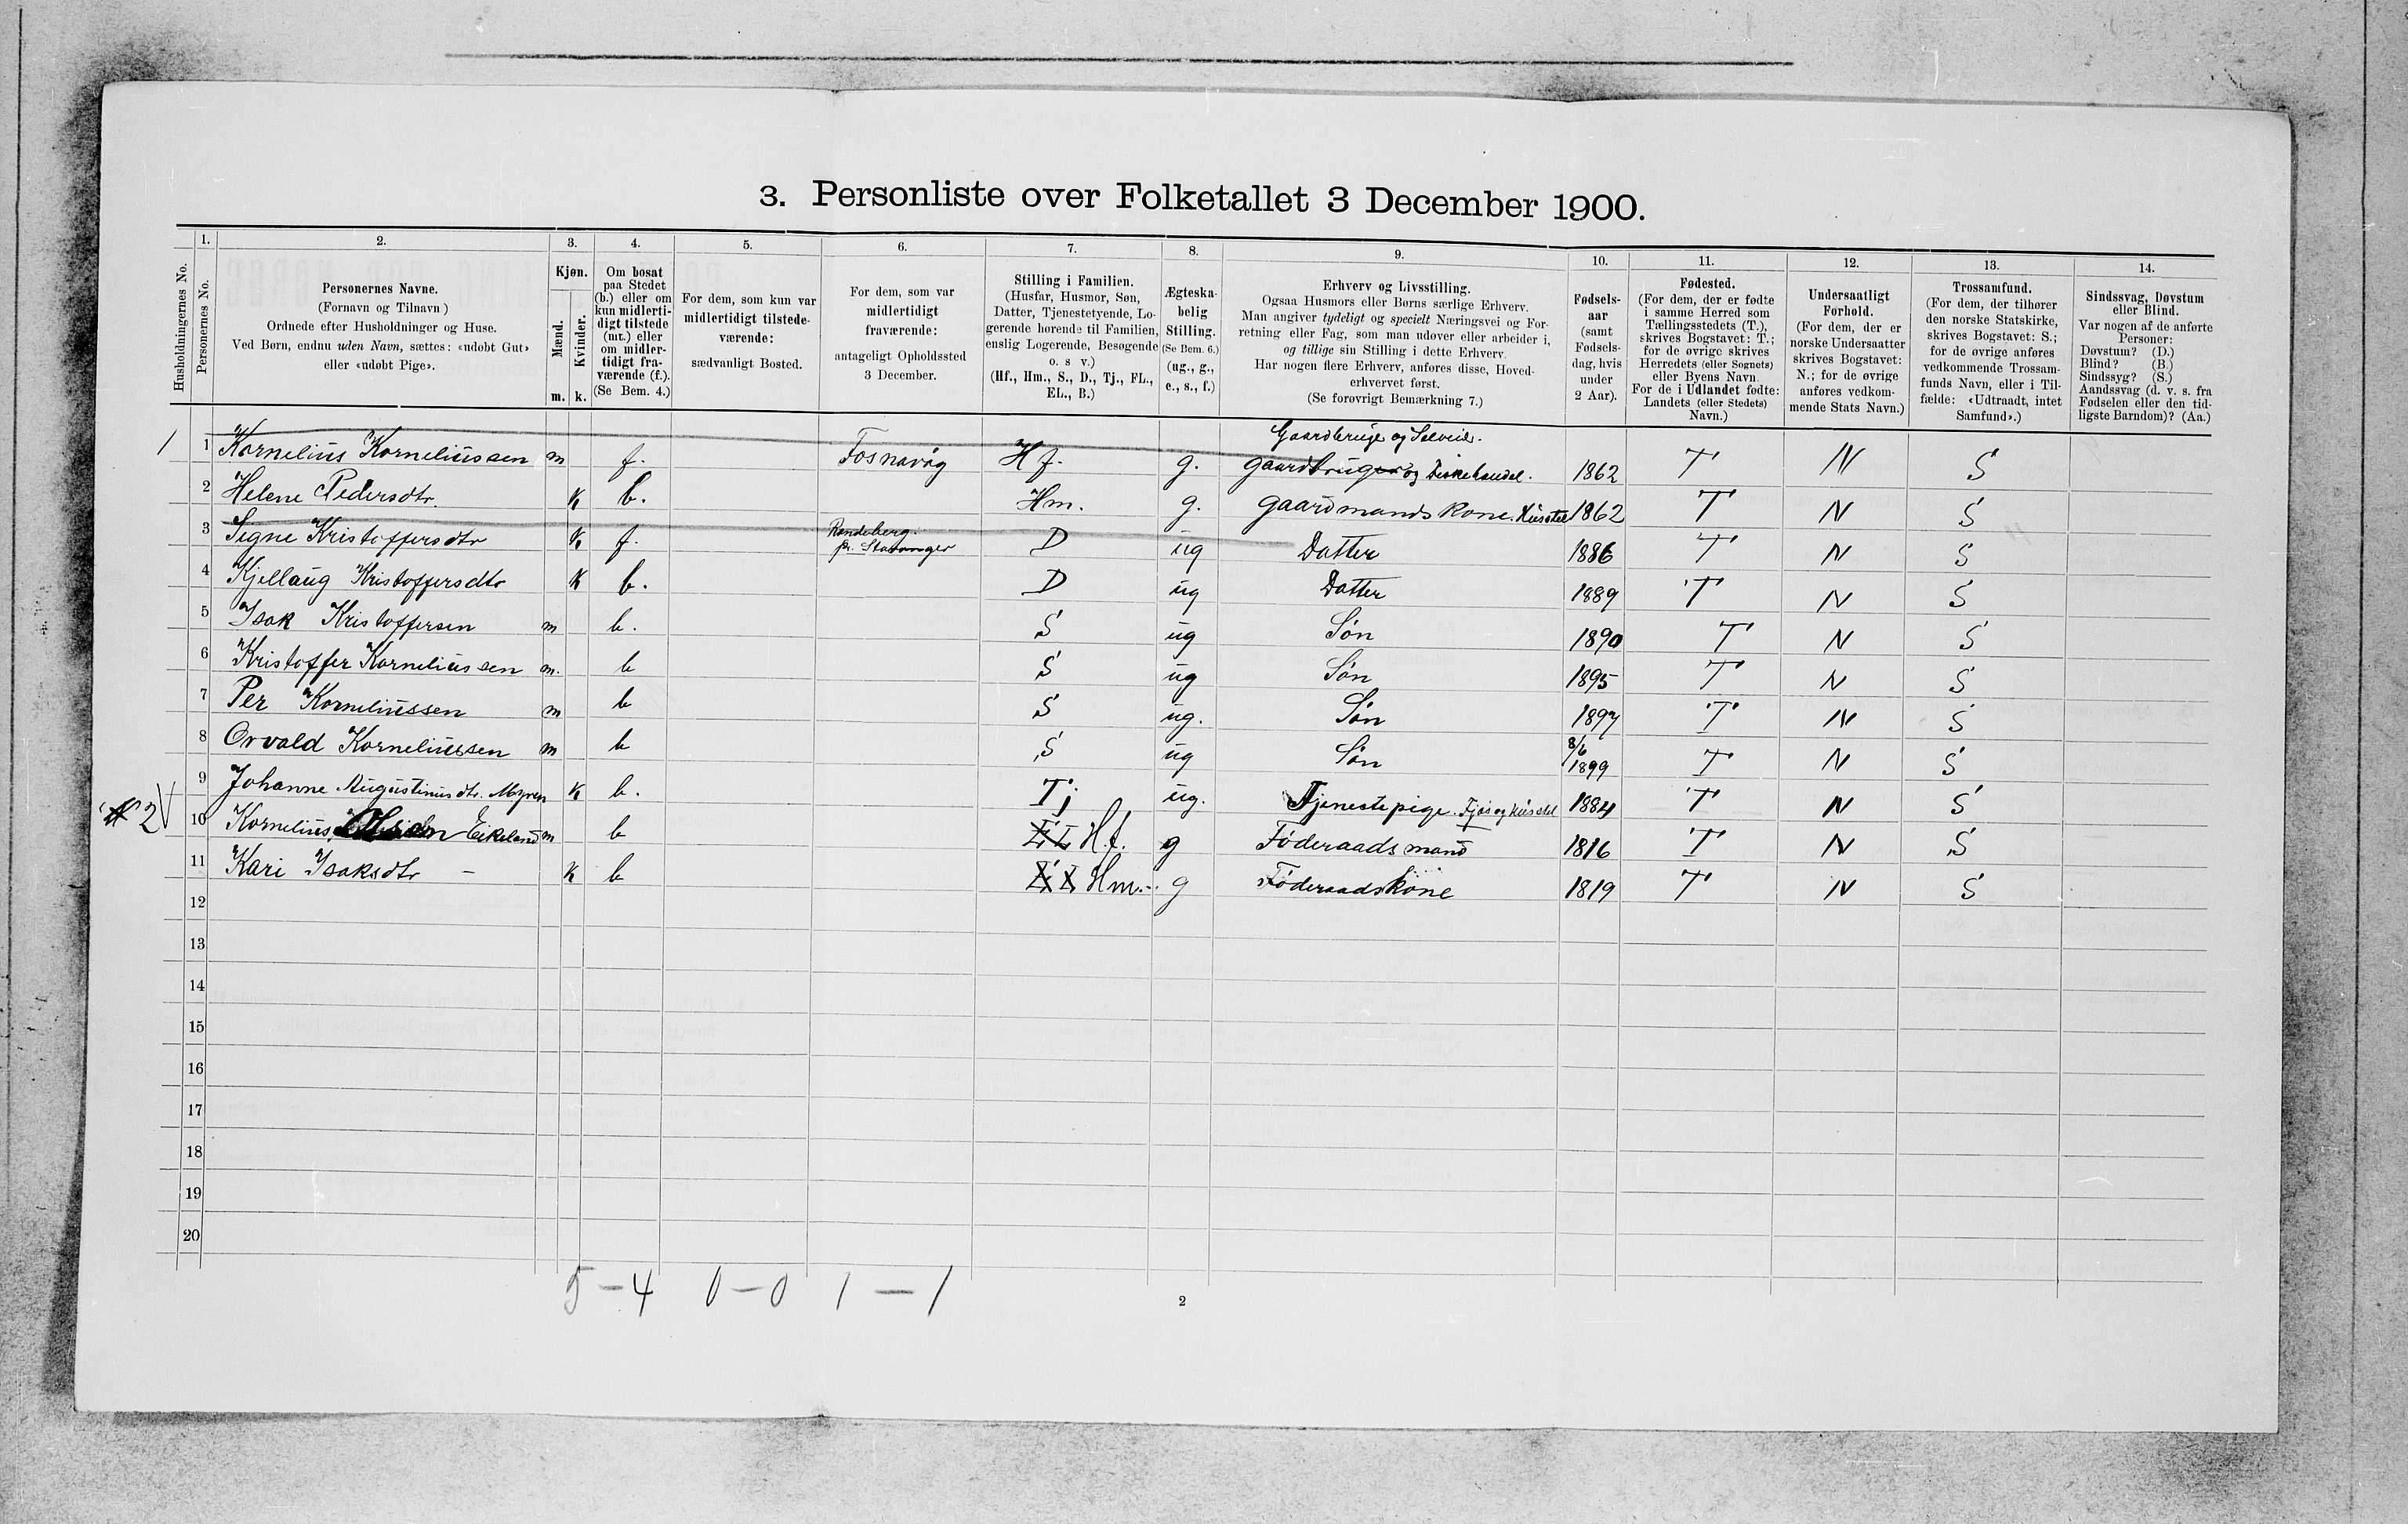 3. Personliste over Folketallet 3 December 1900.
1. 2. 3. 4. 5. 6. 7. 8. 9. 10. 11. 12. 13. 14.
Husholdningernes No.
Personernes No.
Personernes Navne.
(Fornavn og Tilnavn)
Ordnede efter Husholdninger og Huse.
Ved Børn, endnu uden Navn, sættes: «udøbt Gut»
eller «udøbt Pige».
Kjøn.
Mænd.
Kvinder.
m. k.
Om bosat
paa Stedet
(b.) eller om
kun midlerti-
digt tilstede
(mt.) eller
om midler-
tidigt fra-
værende (f.).
(Se Bem. 4.)
For dem, som kun var
midlertidigt tilstede-
værende:
sædvanligt Bosted.
For dem, som var
midlertidigt
fraværende:
antageligt Opholdssted
3 December.
Stilling i Familien.
(Husfar, Husmor, Søn,
Datter, Tjenestetyende, Lo-
gerende hørende til Familien,
enslig Logerende, Besøgende
o. s v.)
(Hf., Hm., S., D., Tj., FL.,
EL., B.)
Ægteska-
belig
Stilling.
(Se Bem. 6.)
(ug., g.,
e., s., f.)
Erhverv og Livsstilling.
Ogsaa Husmors eller Børns særlige Erhverv.
Man angiver tydeligt og specielt Næringsvei og For-
retning eller Fag, som man udøver eller arbeider i,
og tillige sin Stilling i dette Erhverv.
Har nogen flere Erhverv, anføres disse, Hoved-
erhvervet først.
(Se forøvrigt Bemærkning 7.)
Fødsels-
aar
(samt
Fødsels-
dag, hvis
under
2 Aar).
Fødested.
(For dem, der er fødte
i samme Herred som
Tællingsstedets (T.),
skrives Bogstavet: T.;
for de øvrige skrives
Herredets (eller Sognets)
eller Byens Navn.
For de i Udlandet fødte:
Landets (eller Stedets)
Navn.)
Undersaatligt
Forhold.
(For dem, der er
norske Undersaatter
skrives Bogstavet:
N.; for de øvrige
anføres vedkom-
mende Stats Navn.)
Trossamfund.
(For dem, der tilhører
den norske Statskirke,
skrives Bogstavet: S.;
for de øvrige anføres
vedkommende Trossam-
funds Navn, eller i Til-
fælde: «Udtraadt, intet
Samfund».)
Sindssvag, Døvstum
eller Blind.
Var nogen af de anførte
Personer:
Døvstum? (D.)
Blind? (B.)
Sindssyg? (S.)
Aandssvag (d. v. s. fra
Fødselen eller den tid-
ligste Barndom)? (Aa.)
Gaardbruge og Selveie.
1 1 Kornelius Korneliussen m f. Fosnavåg Hf. g. gaardbruger og Fiskehandel. 1862 T N S
2 Helene Pedersdtr. K b. Hm. g. gaardmands kone. Husstel 1862 T N S
3 Signe Kristoffersdtr K f. Randeberg. pr. Stavanger D ug Datter 1886 T N S
4 Kjellaug Kristoffersdtr K b. D ug Datter 1889 T N S
5 Isak Kristoffersen m b. S ug Søn 1890 T N S
6 Kristoffer Korneliussen m. b S ug Søn 1895 T N S
7 Per Korneliussen m b S ug. Søn 1897 T N S
8 Orvald Korneliussen m b S ug Søn 8/6 1899 T N S
9 Johanne Augustinusdtr. Myren K b. Tj ug. Tjenestepige. Fjøs og husstel 1884 T N S
2 10 Kornelius Olsen Eikeland m b Hf. g Føderaadsmand 1816 T N S
11 Kari Isaksdtr - K b Hm. g Føderaadskone 1819 T N S
12
13
14
15
16
17
18
19
20
5 - 4 0 - 0 1 - 1
2